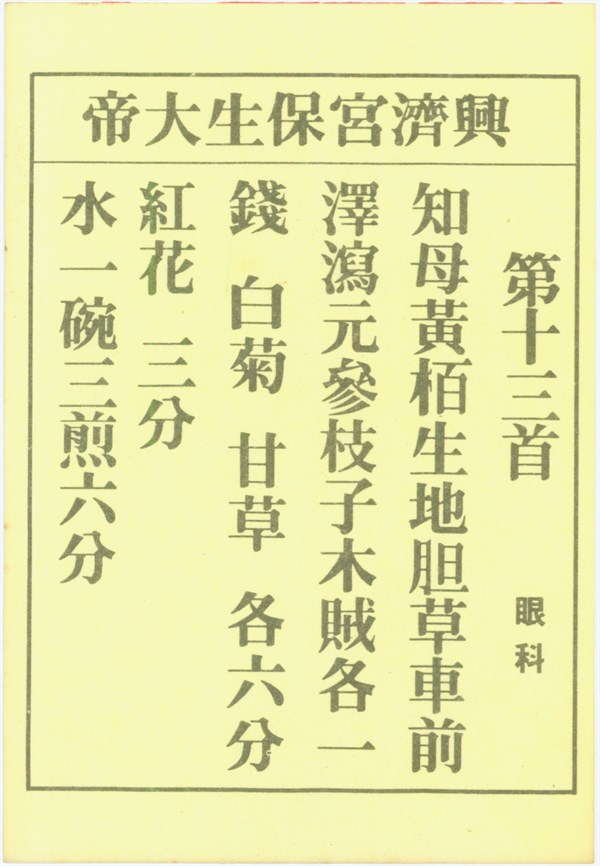 興濟宮保生大帝
第十三首 眼科
知母黃栢生地胆草車前
澤瀉元參枝子木賊各一
錢 白菊 甘草 各六分
紅花 三分
水一碗三煎六分